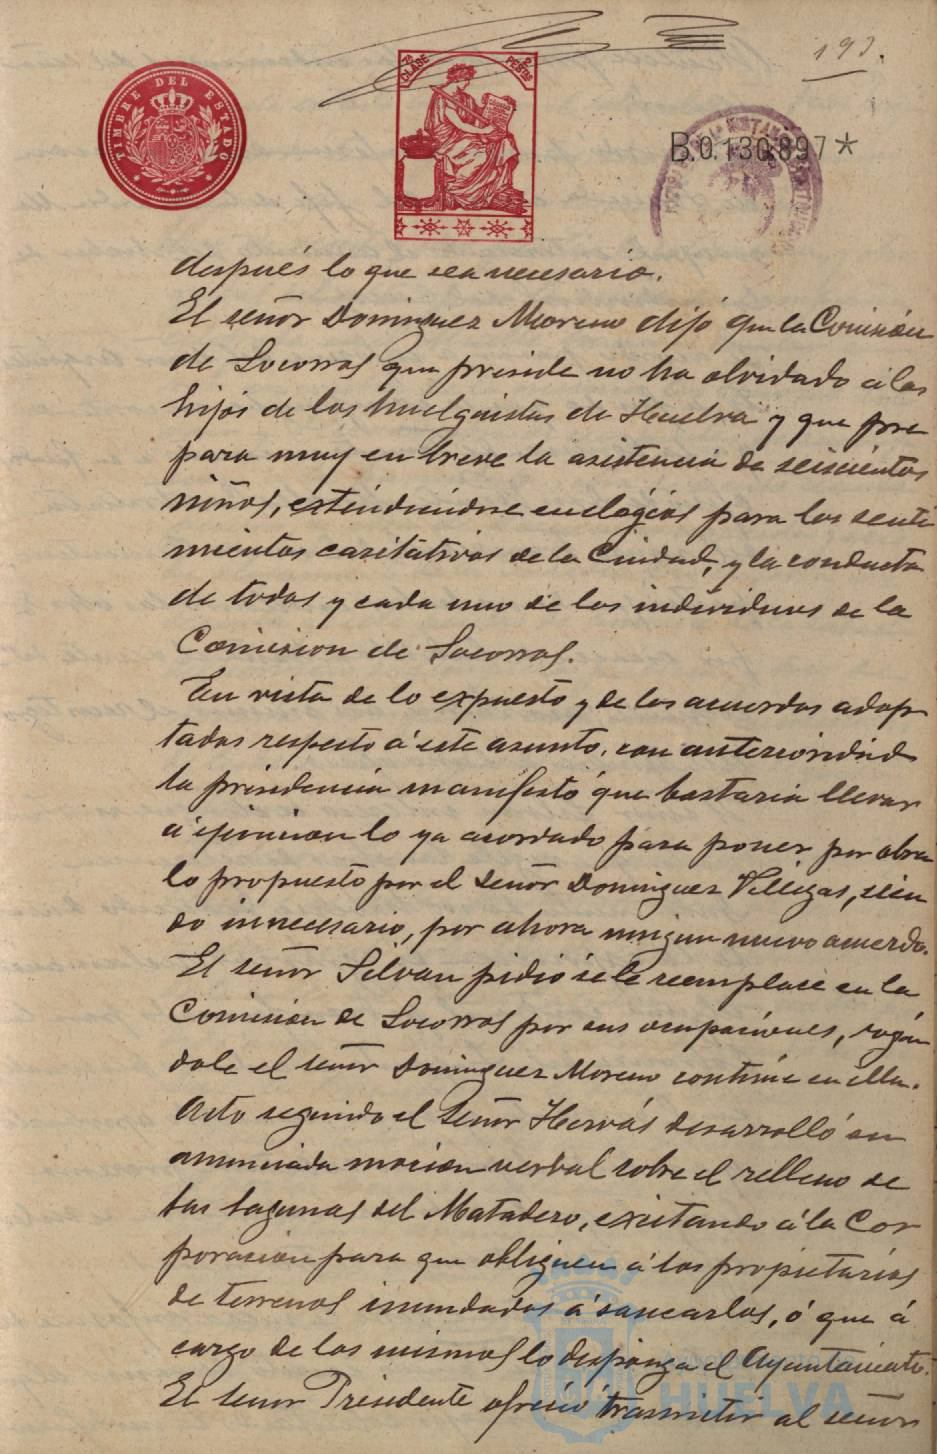 193.
TIMBRE DEL ESTADO
7ª CLASE 2 PESTAS
B.0.130.897*
después lo que sea necesario.
El señor Dominguez Moreno dijo que la Comisión
de Socorros que preside no ha olvidado á los
hijos de los huelguistas de Huelva y que pre
para muy en breve la asistencia de seiscientos
niños, extendiendose en elógios para los senti
mientos caritativos de la Ciudad, y la conducta
de todos y cada uno de los individuos de la
Comision de Socorros.
En vista de lo expuesto y de los acuerdos adop
tados respecto á este asunto, con anterioridad
la presidencia manifestó que bastaria llevar
á ejecucion lo ya acordado para poner por obra
lo propuesto por el señor Dominguez Villegas, sien
do innecesario, por ahora ningun nuevo acuerdo.
El señor Silvan pidió se le reemplace en la
Comisión de Socorros por sus ocupaciones, rogán
dole el señor Dominguez Moreno continúe en ella.
Acto seguido el señor Hervás desarrolló su
anunciada mocion verbal sobre el relleno de
las lagunas del Matadero, excitando á la Cor
poracion para que obliguen á los propietarios
de terrenos inundados á sanearlos, ó que á
cargo de los mismos lo disponga el Ayuntamiento.
El señor Presidente ofreció trasmitir al señor
HUELVA